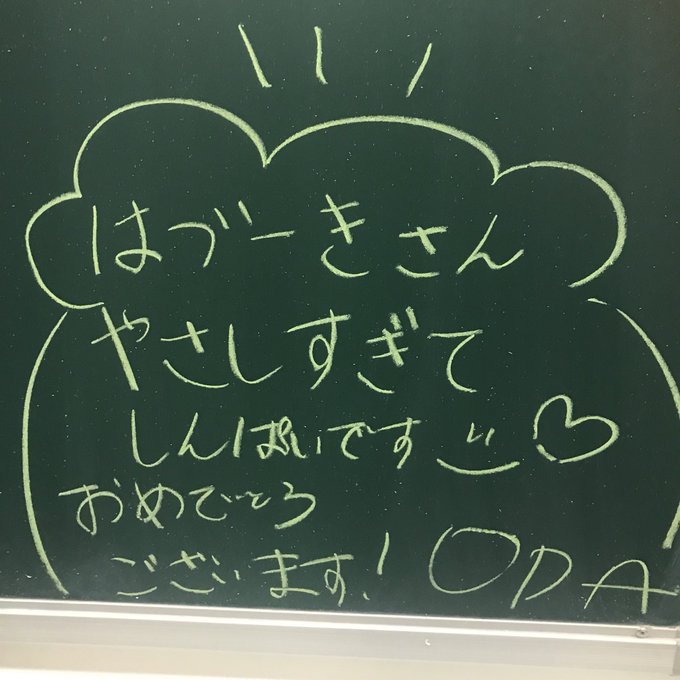 はづーきさん
やさしすぎて
しんぱいです
おめでとう
ございます! ODA